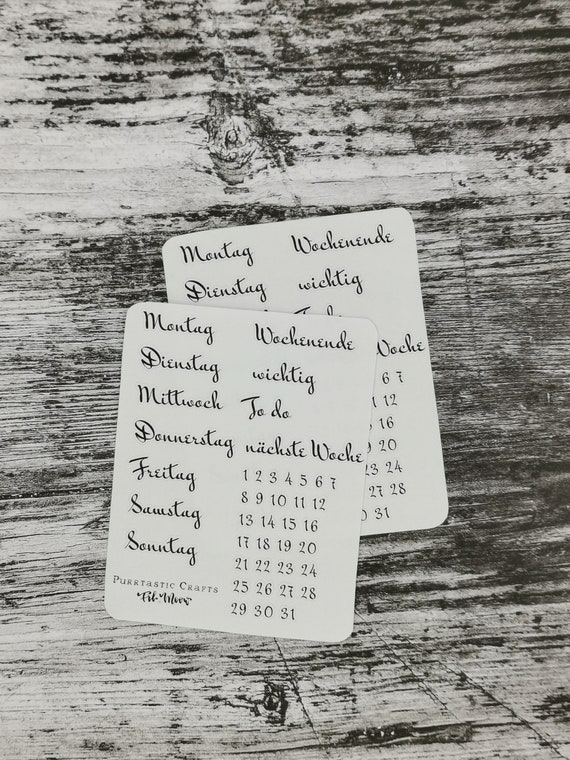 Montag Wochenende
Dienstag wichtig
To do
Woche
6 7
12
16
20
23 24
27 28
31
Montag Wochenende
Dienstag wichtig
Mittwoch To do
Donnerstag nächste Woche
Freitag 1 2 3 4 5 6 7
8 9 10 11 12
Samstag 13 14 15 16
Sonntag 17 18 19 20
21 22 23 24
Purrtastic Crafts 25 26 27 28
29 30 31